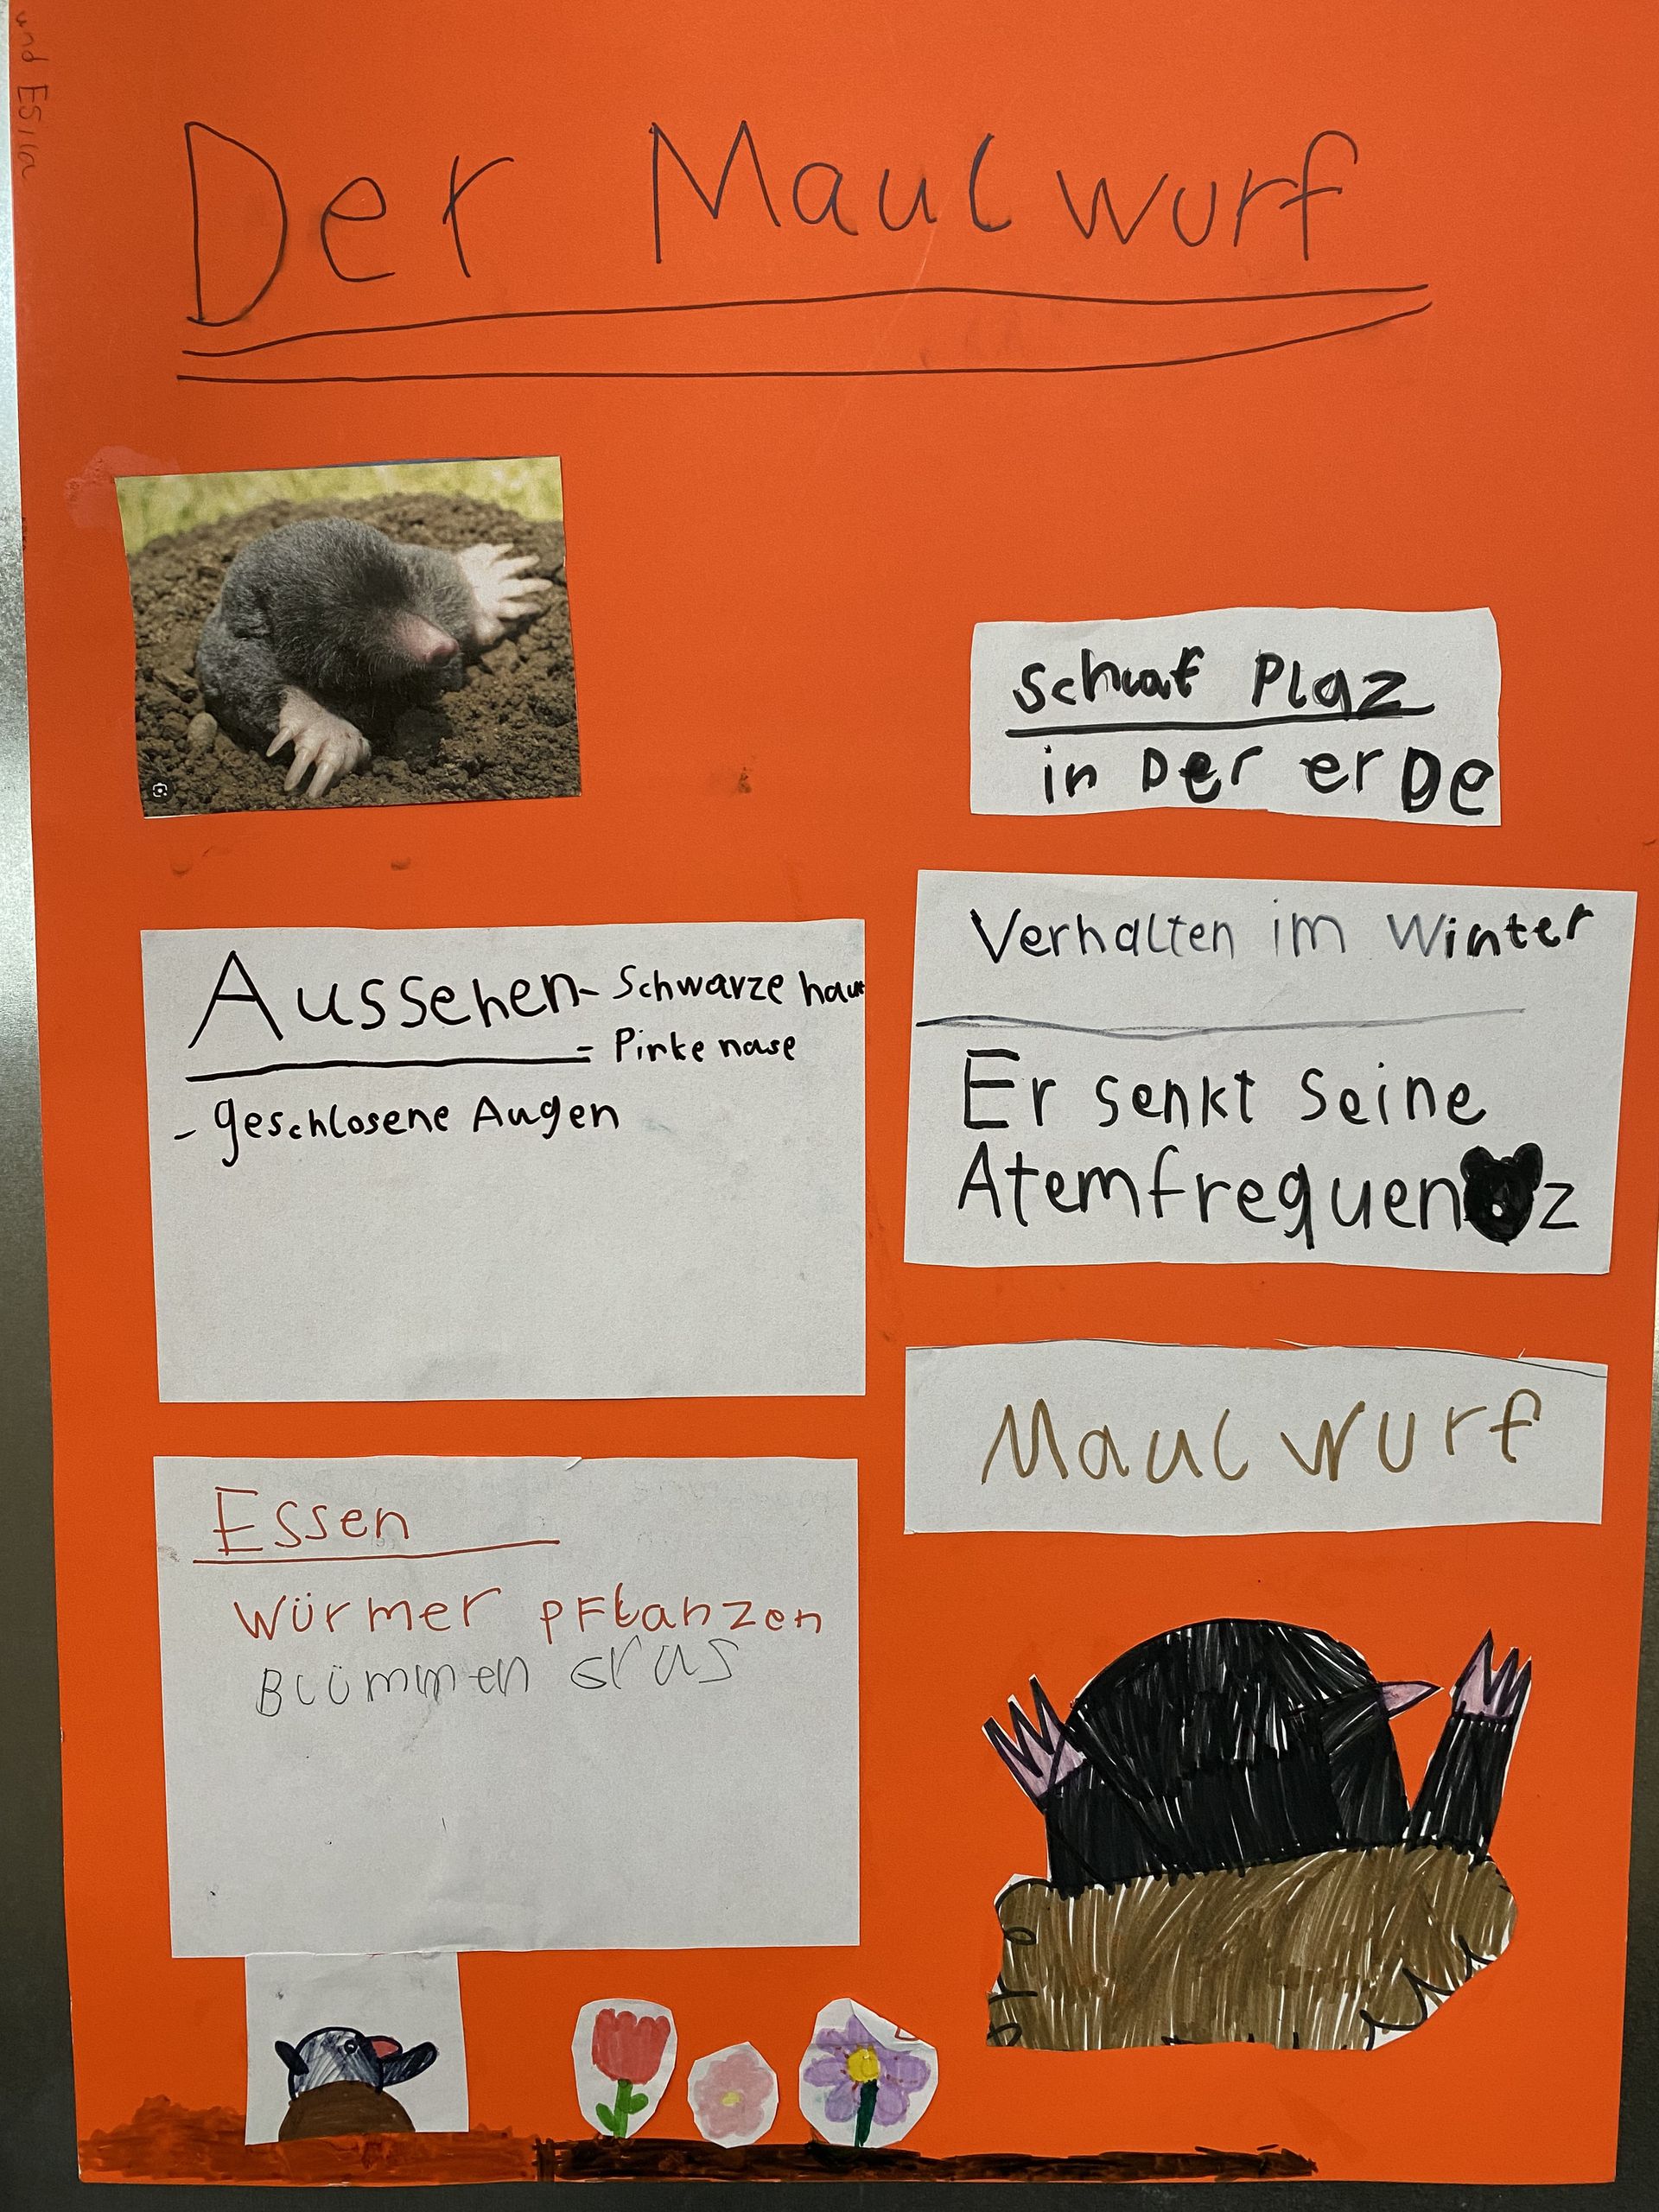 und Esila
Der Maulwurf
Schlaf Plaz
in Der erDe
Aussehen - Schwarze haut
- Pinke nase
- geschlosene Augen
Verhalten im Winter
Er senkt seine
Atemfrequenz
Maulwurf
Essen
Würmer pflanzen
Blümmen Gras